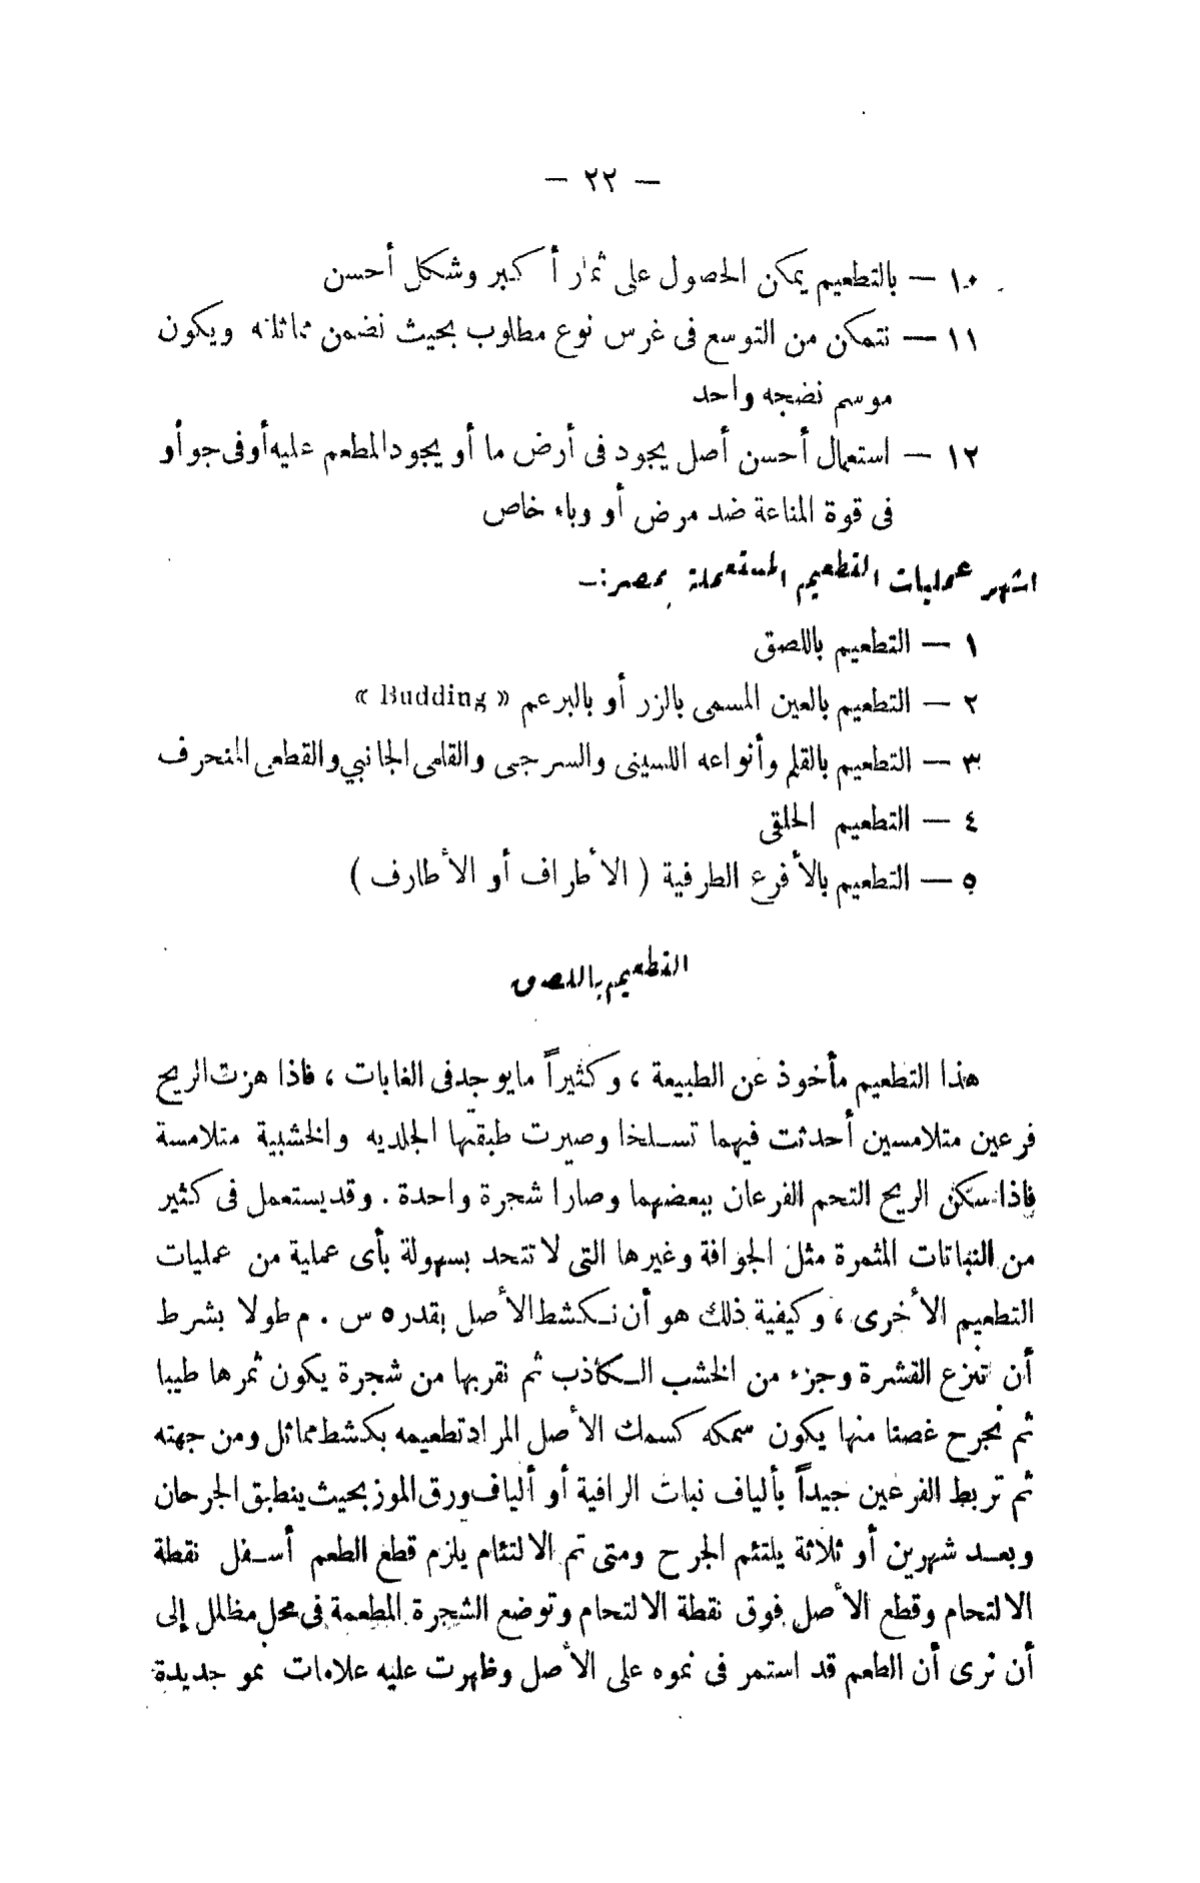 — ٢٢ —
١٠ — بالتطعيم يمكن الحصول على ثمار أكبر وشكل أحسن
١١ — نتمكن من التوسع فى غرس نوع مطلوب بحيث نضمن مماثلته ويكون
موسم نضجه واحد
١٢ — استعمال أحسن أصل يجود فى أرض ما أو يجود المطعم عليه أو فى جو أو
فى قوة المناعة ضد مرض أو وباء خاص
اشهر عمليات التطعيم المستعملة بمصر :—
١ — التطعيم باللصق
٢ — التطعيم بالعين المسمى بالزر أو بالبرعم « Budding »
٣ — التطعيم بالقلم وأنواعه اللسينى والسرجى والقلمى الجانبي والقطعى المنحرف
٤ — التطعيم الحلقى
٥ — التطعيم بالأفرع الطرفية ( الأطراف أو الأطارف )
التطعيم باللصق
هذا التطعيم مأخوذ عن الطبيعة ، وكثيراً مايوجد فى الغابات ، فاذا هزت الريح
فرعين متلامسين أحدثت فيهما تسلخا وصيرت طبقتها الجلديه والخشبية متلامسة
فاذا سكن الريح التحم الفرعان ببعضهما وصارا شجرة واحدة . وقد يستعمل فى كثير
من النباتات المثمرة مثل الجوافة وغيرها التى لا تتحد بسهولة بأى عملية من عمليات
التطعيم الأخرى ، وكيفية ذلك هو أن نكشط الأصل بقدر ٥ س . م طولا بشرط
أن تنزع القشرة وجزء من الخشب الكاذب ثم نقربها من شجرة يكون ثمرها طيبا
ثم نجرح غصنا منها يكون سمكه كسمك الأصل المراد تطعيمه بكشط مماثل ومن جهته
ثم تربط الفرعين جيداً بألياف نبات الرافية أو ألياف ورق الموز بحيث ينطبق الجرحان
وبعد شهرين أو ثلاثة يلتئم الجرح ومتى تم الالتئام يلزم قطع الطعم أسفل نقطة
الالتحام وقطع الأصل فوق نقطة الالتحام وتوضع الشجرة المطعمة فى محل مظلل إلى
أن نرى أن الطعم قد استمر فى نموه على الأصل وظهرت عليه علامات نمو جديدة